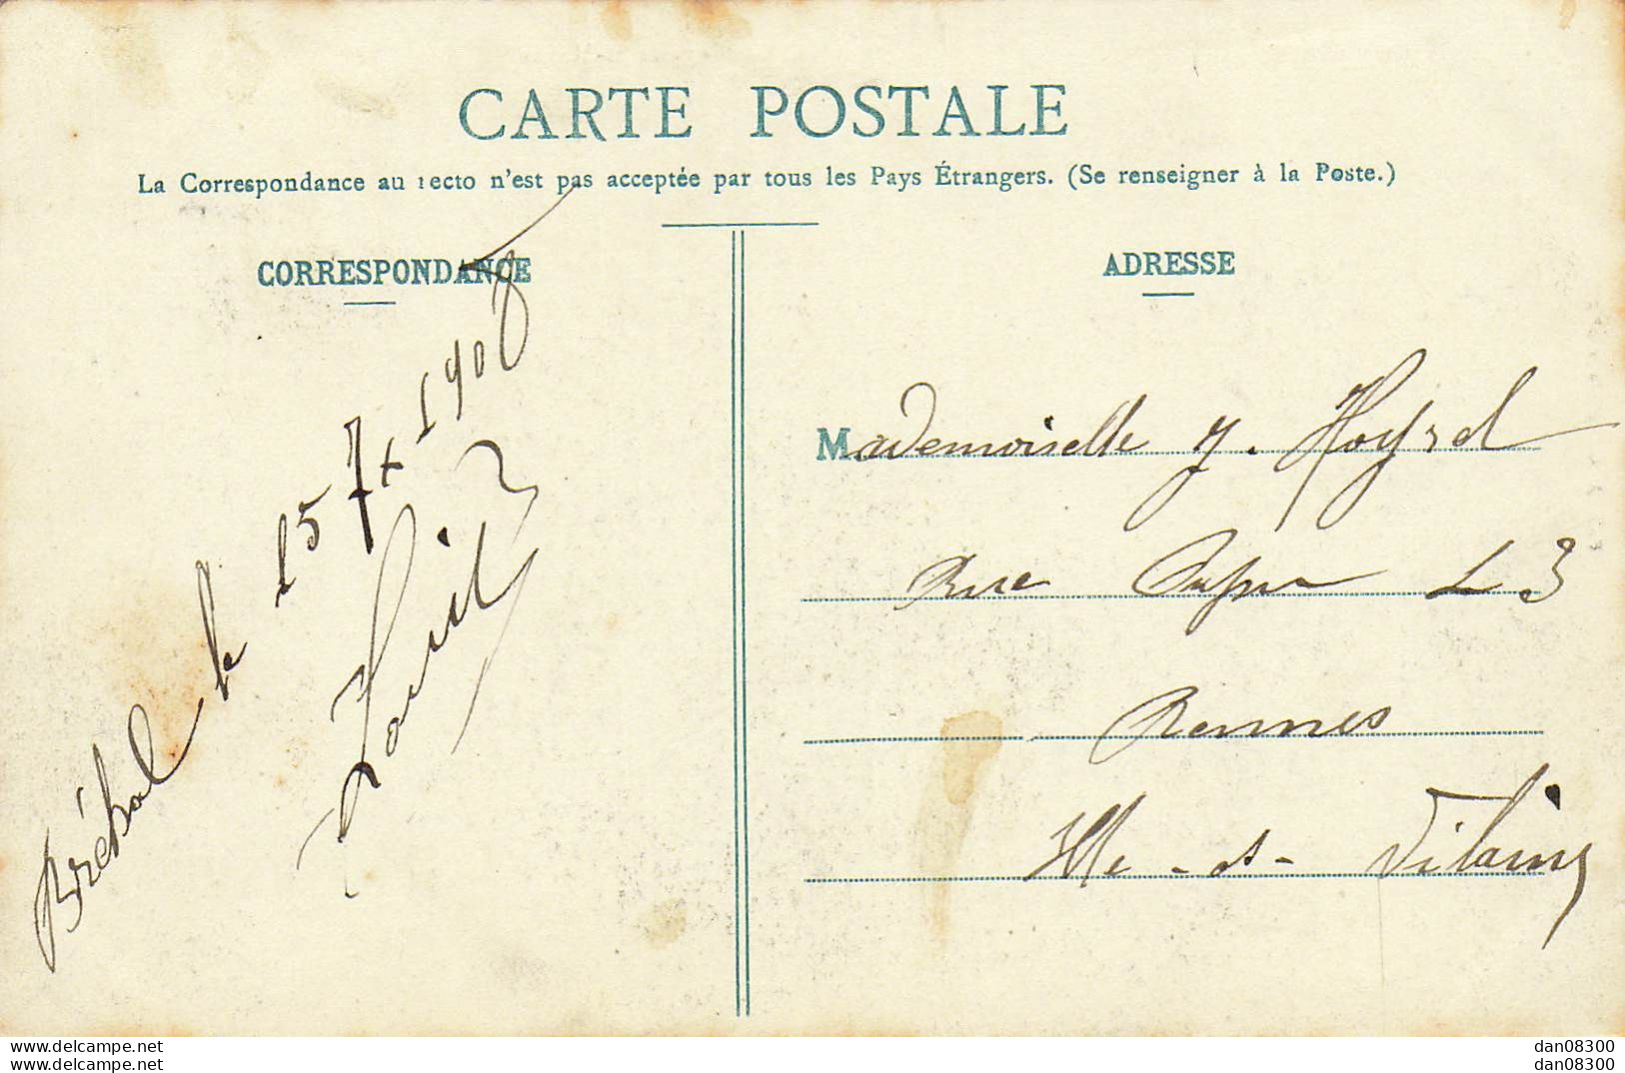 CARTE POSTALE
La Correspondance au recto n'est pas acceptée par tous les Pays Étrangers. (Se renseigner à la Poste.)
CORRESPONDANCE
Bréhal le 15 7x 1908
ADRESSE
Mademoiselle J.
Rue 3
Rennes
Ille-et-Vilaine
www.delcampe.net
www.delcampe.net
dan08300
dan08300